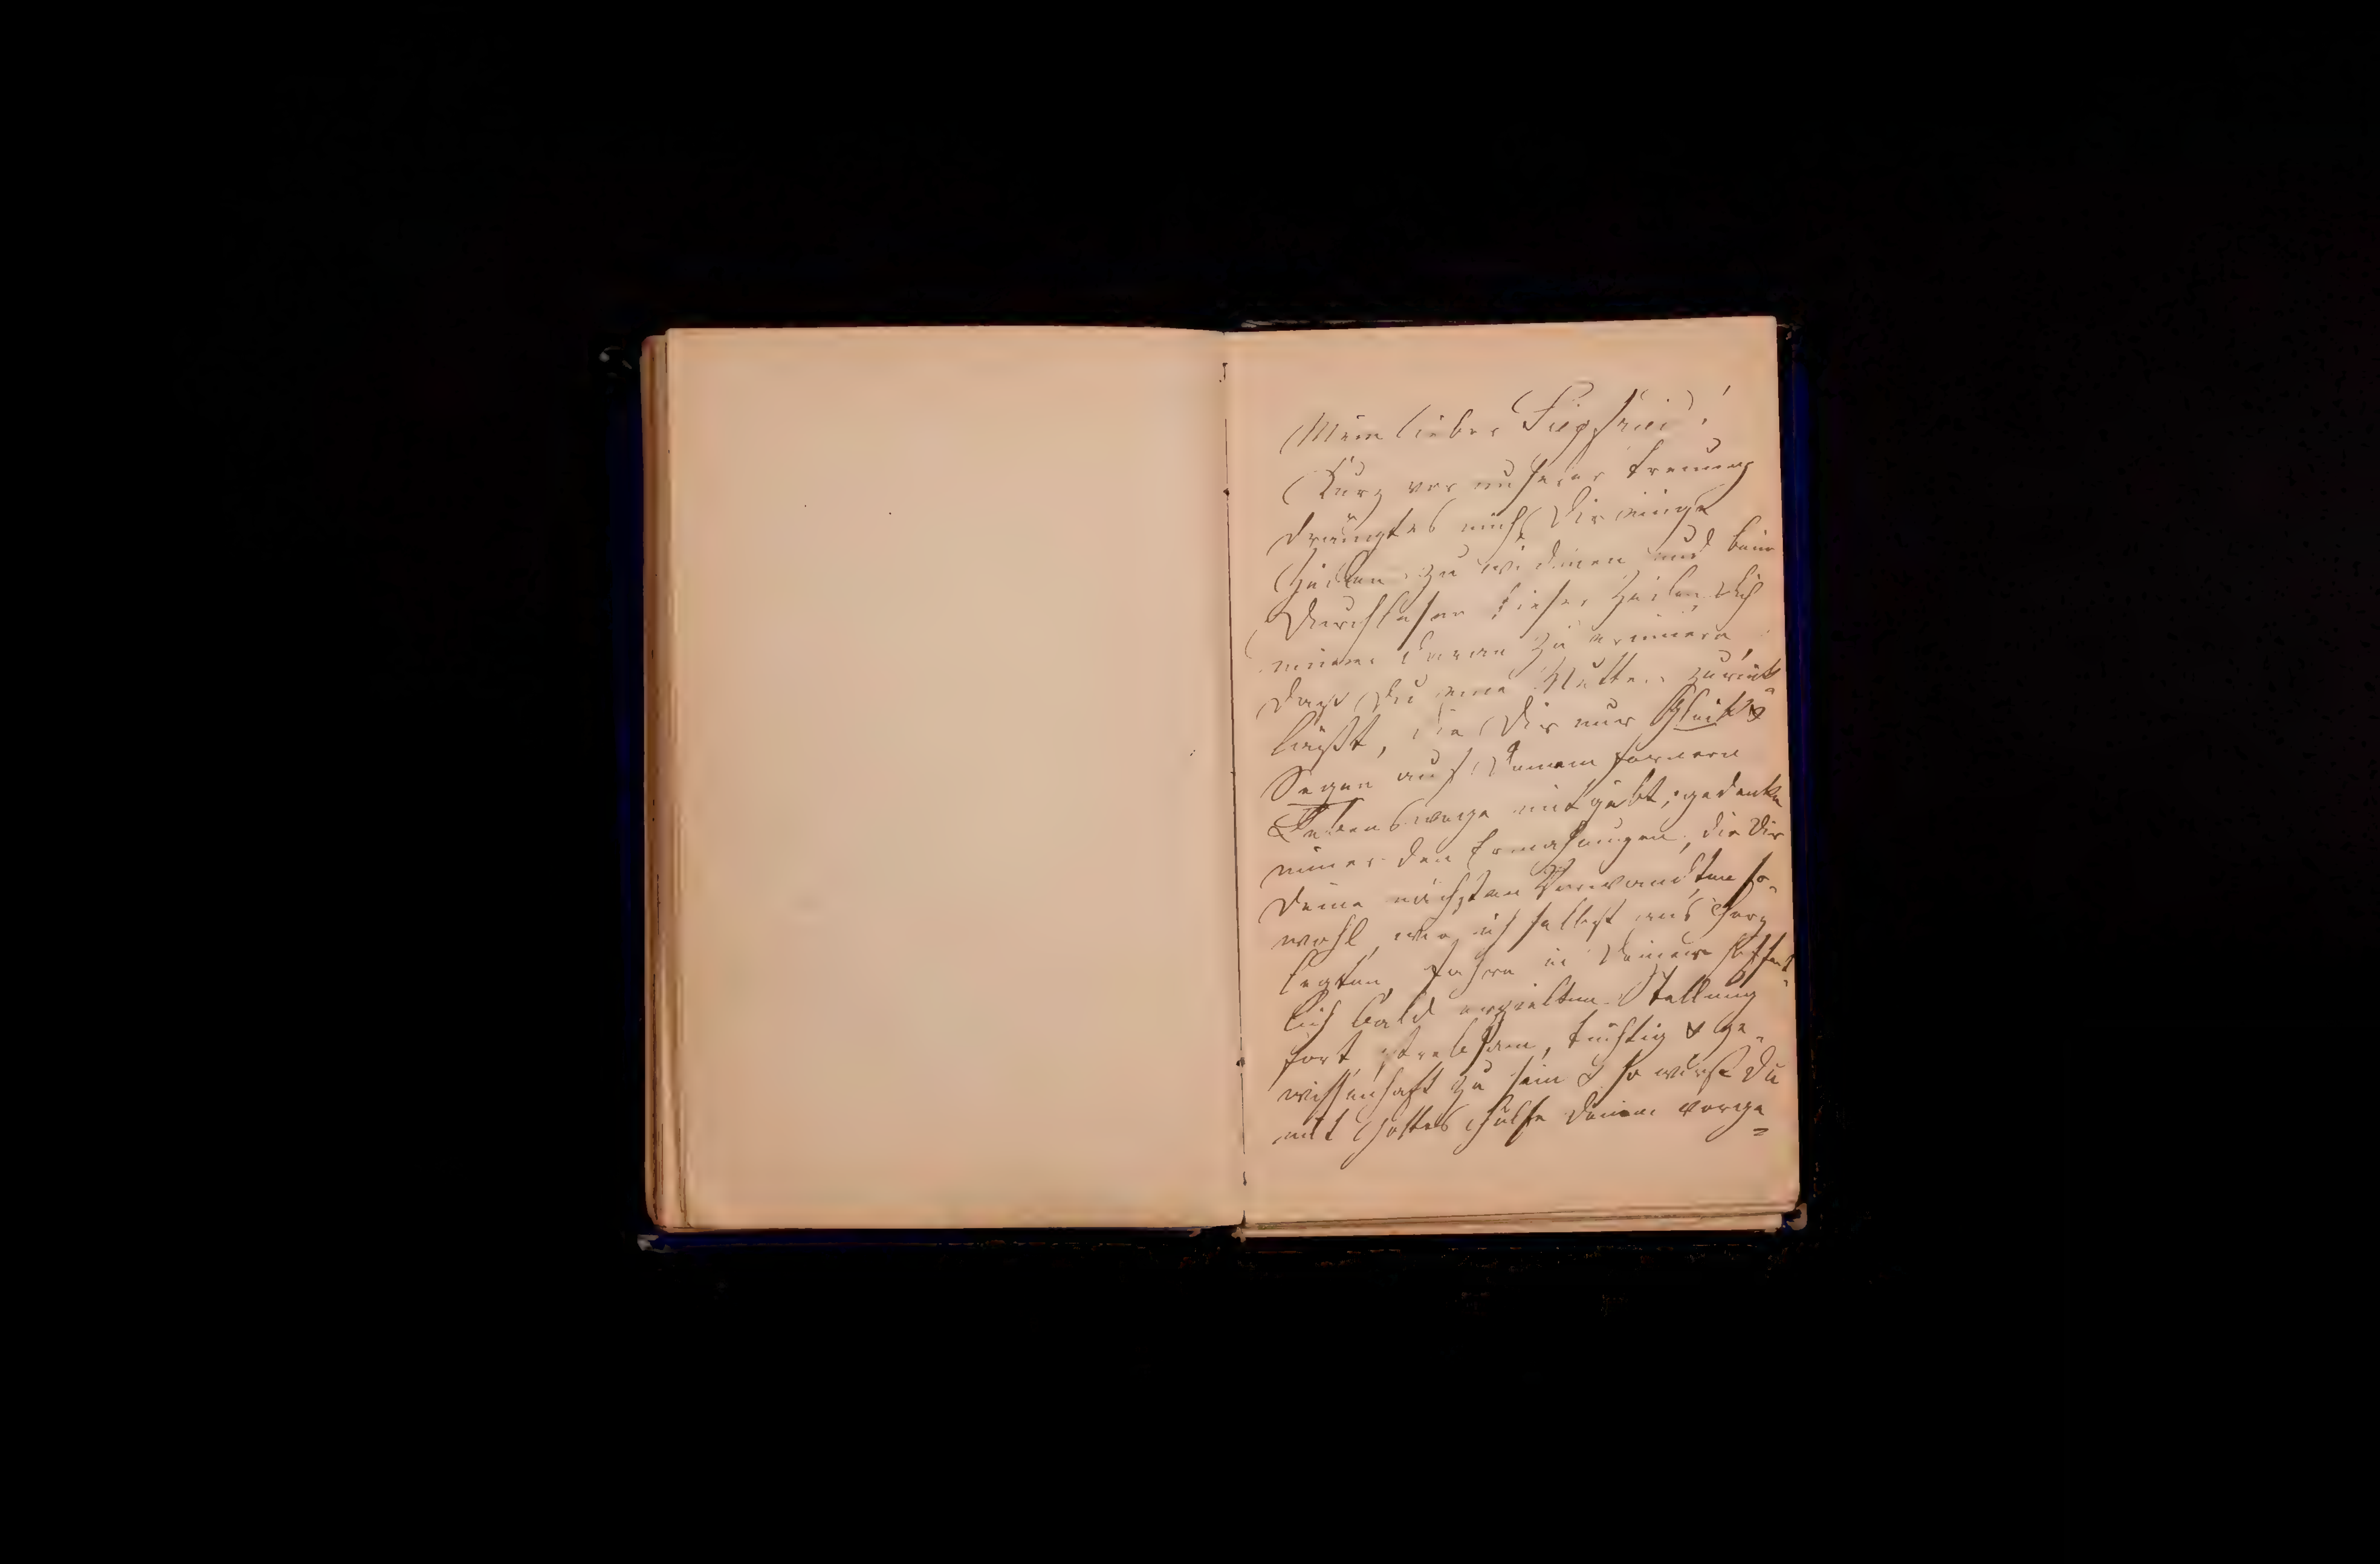 Mein lieber Siegfried!
Kurz vor unserer Trennung
drängt es mich Dir einige
Zeilen zu widmen und beim
Durchlesen dieser Zeilen Dich
immer daran zu erinnern,
dass Du eine Mutter zurück
läßt, die Dir nur Glück &
Segen auf Deinem ferneren
Lebenswege mitgiebt, gedenke
immer den Ermahnungen, die Dir
Deine nächsten Verwandten so-
wohl, wie ich selbst ans Herz
legten, fahre in Deiner hoffent-
lich bald erzielten Stellung
fort, strebsam, tüchtig & ge-
wissenhaft zu sein & so wirst Du
mit Gottes Hülfe Deinem vorge=